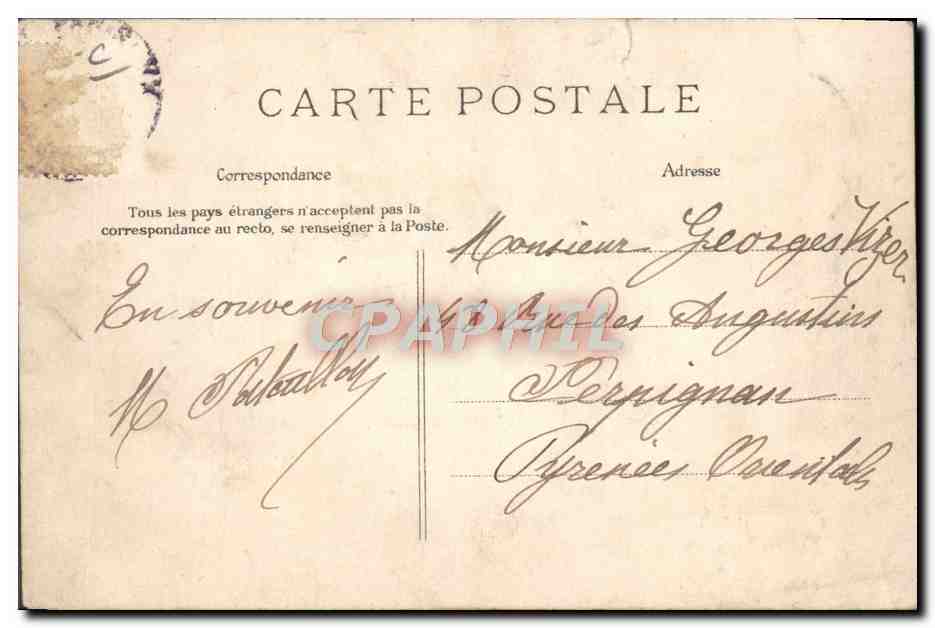 C
CARTE POSTALE
Correspondance
Tous les pays étrangers n'acceptent pas la
correspondance au recto, se renseigner à la Poste.
En souvenir
M
Adresse
Monsieur Georges
48 Rue des Augustins
Perpignan
Pyrenées Orientales
CPAPHIL